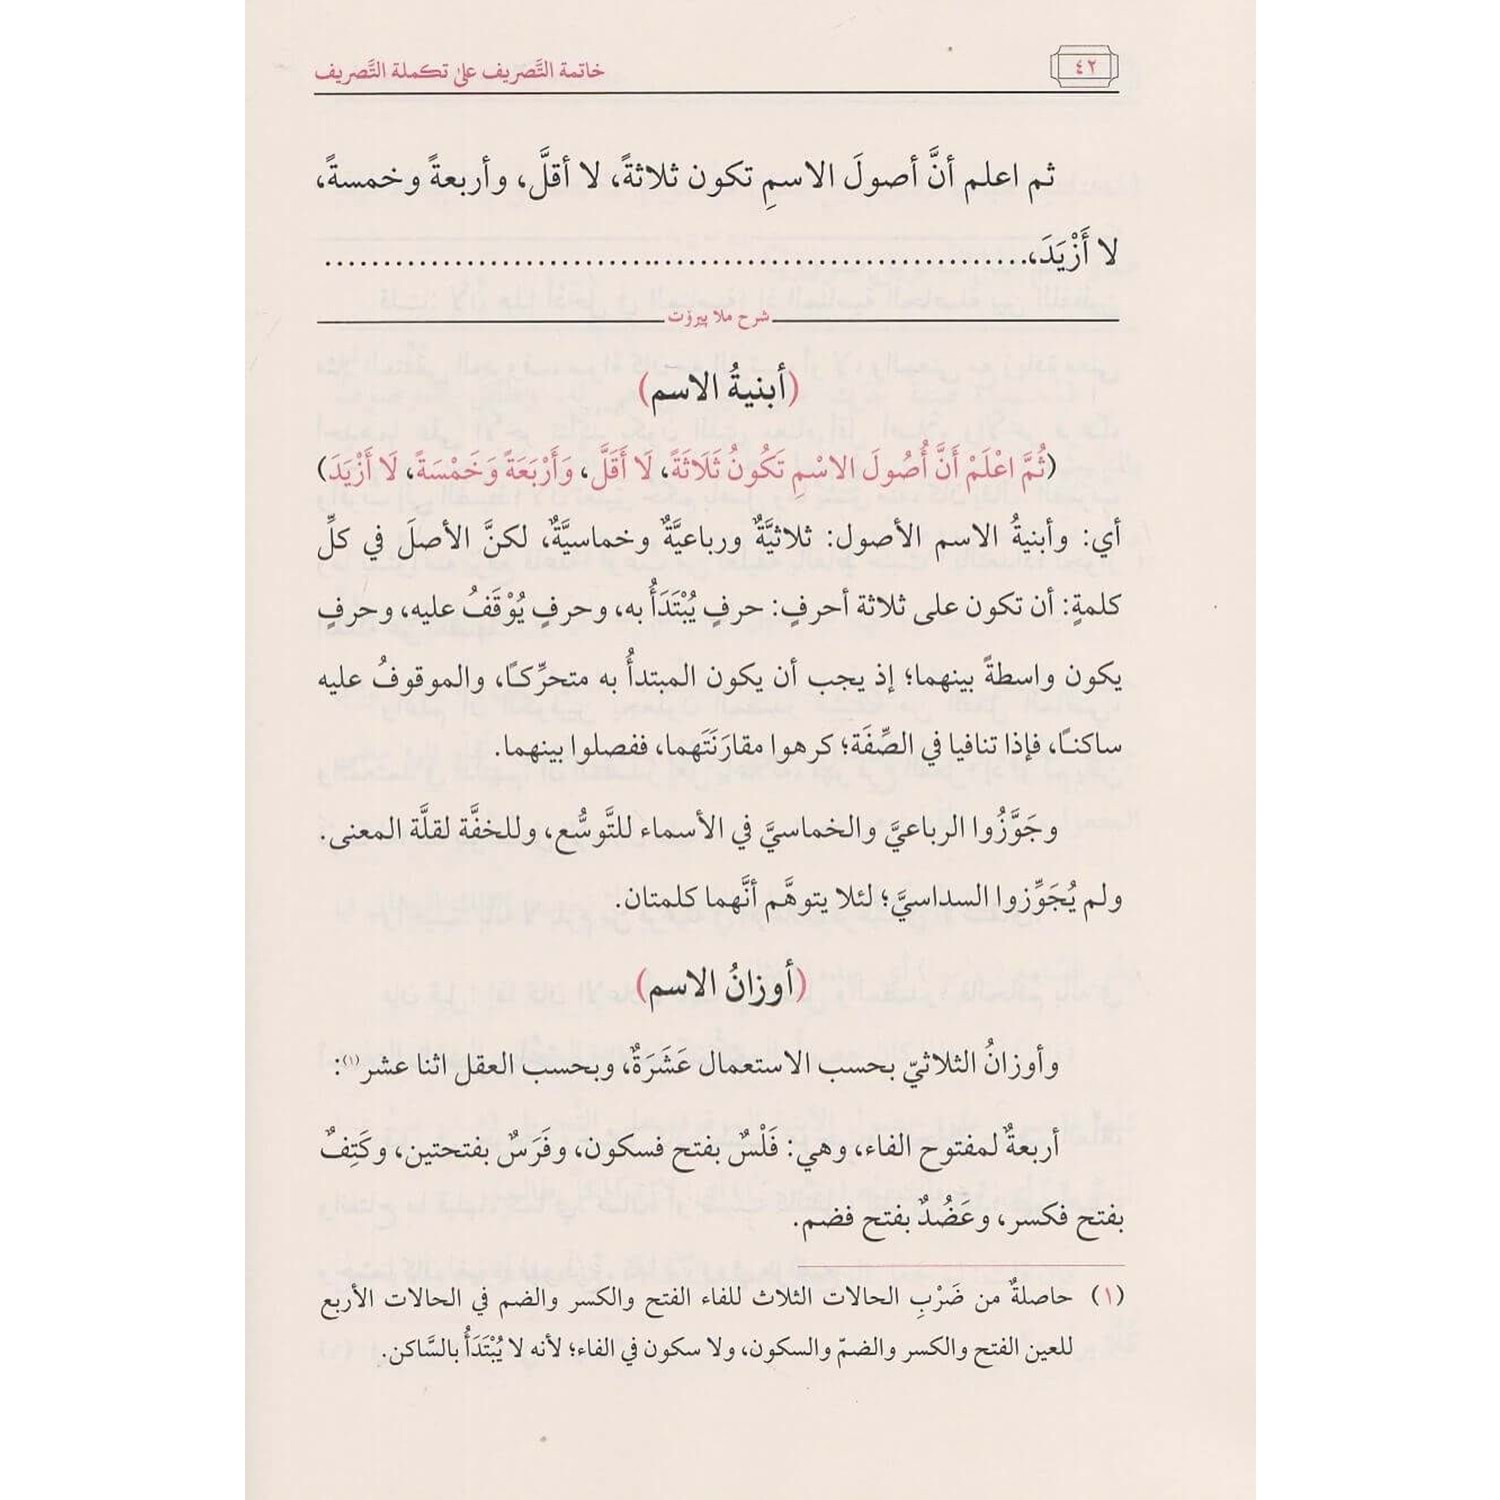 ٤٢
خاتمة التَّصريف على تكملة التَّصريف
ثم اعلم أنَّ أصولَ الاسمِ تكون ثلاثةً، لا أقلَّ، وأربعةً وخمسةً،
لا أَزْيَدَ،..........................................................
شرح ملا پیرۆت
(أبنيةُ الاسم)
(ثُمَّ اعْلَمْ أَنَّ أُصُولَ الاسْمِ تَكُونُ ثَلَاثَةً، لَا أَقَلَّ، وَأَرْبَعَةً وَخَمْسَةً، لَا أَزْيَدَ)
أي: وأبنيةُ الاسم الأصول: ثلاثيَّةٌ ورباعيَّةٌ وخماسيَّةٌ، لكنَّ الأصلَ في كلِّ
كلمةٍ: أن تكون على ثلاثة أحرفٍ: حرفٍ يُبْتَدَأُ به، وحرفٍ يُوْقَفُ عليه، وحرفٍ
يكون واسطةً بينهما؛ إذ يجب أن يكون المبتدأُ به متحرِّكًا، والموقوفُ عليه
ساكنًا، فإذا تنافيا في الصِّفَة؛ كرهوا مقارَنَتَهما، ففصلوا بينهما.
وجَوَّزُوا الرباعيَّ والخماسيَّ في الأسماء للتَّوسُّع، وللخفَّة لقلَّة المعنى.
ولم يُجَوِّزوا السداسيَّ؛ لئلا يتوهَّم أنَّهما كلمتان.
(أوزانُ الاسم)
وأوزانُ الثلاثيّ بحسب الاستعمال عَشَرَةٌ، وبحسب العقل اثنا عشر(١):
أربعةٌ لمفتوح الفاء، وهي: فَلْسٌ بفتح فسكون، وفَرَسٌ بفتحتين، وكَتِفٌ
بفتح فكسر، وعَضُدٌ بفتح فضم.
(١) حاصلةٌ من ضَرْبِ الحالات الثلاث للفاء الفتح والكسر والضم في الحالات الأربع
للعين الفتح والكسر والضمّ والسكون، ولا سكون في الفاء؛ لأنه لا يُبْتَدَأُ بالسَّاكن.